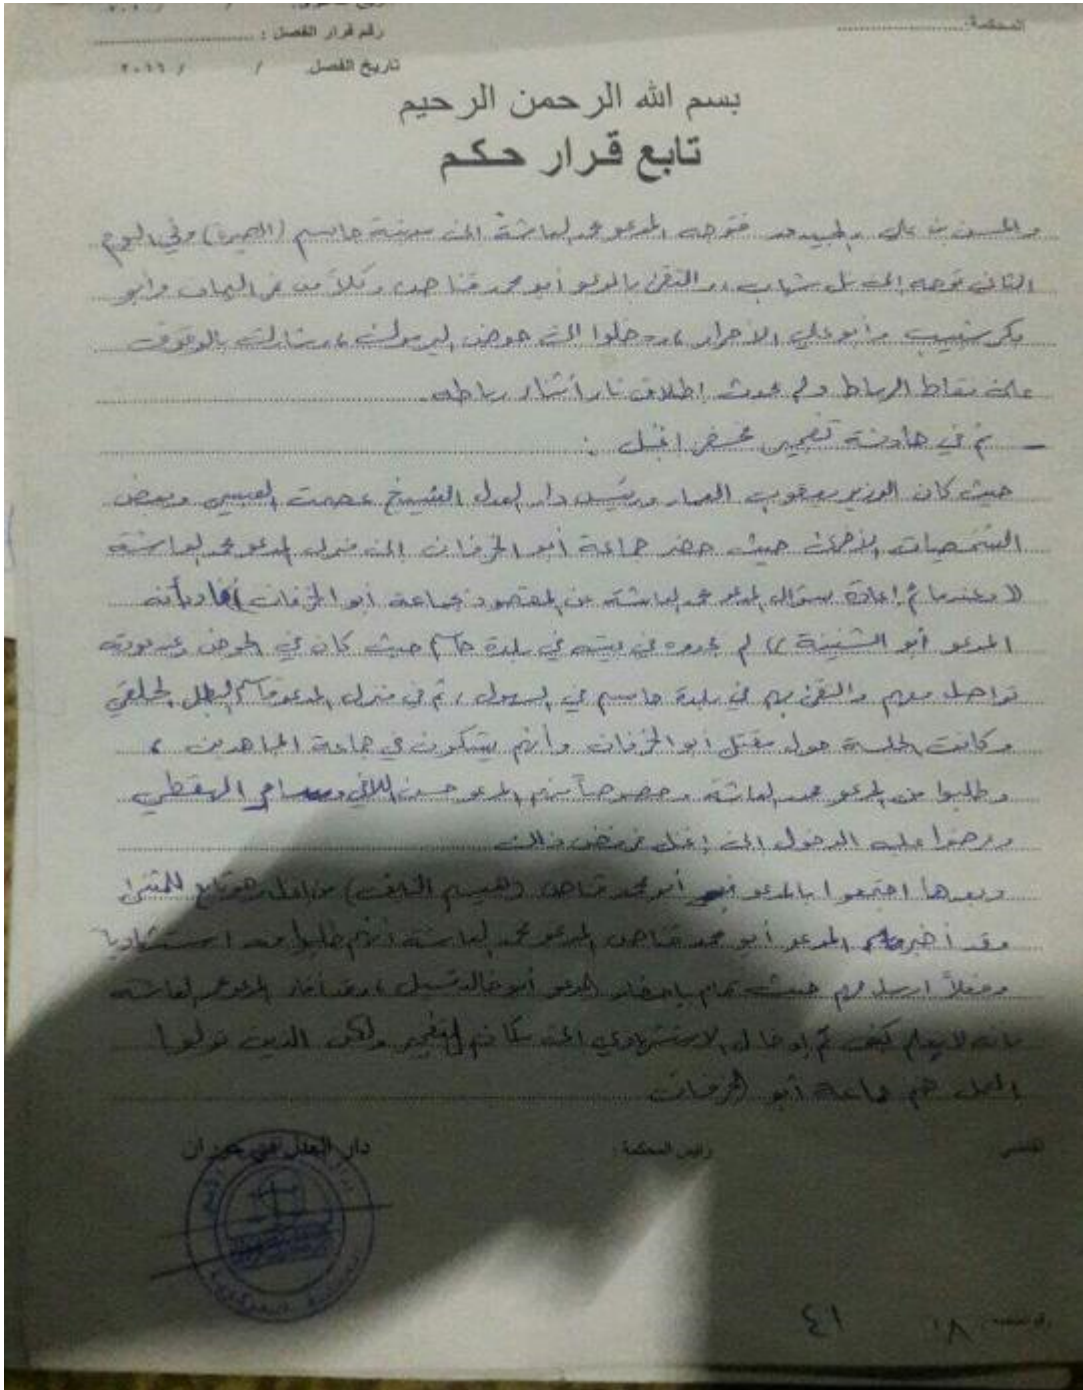 المحكمة:
رقم قرار الفصل :
تاريخ الفصل / / ٢٠١٦
بسم الله الرحمن الرحيم
تابع قرار حكم
فتوجه المدعو محمد لعاشة الى مدينة جاسم (الجيرة) وفي اليوم
الثاني توجه الى تل شهاب والتقى بالمدعو أبو محمد قناص وكلاً من
وأبو علي الأحرار ودخلوا الى حوض اليرموك وشارك بالوقوف
على نقاط الرباط ولم يحدث إطلاق نار أثناء رباطه.
- ثم في حادثة تفجير مخفر إنخل :
حيث كان الوزير يعقوب العمار ورئيس دار العدل الشيخ عصمت العبسي وبعض
الشخصيات الأخرى حيث حضر جماعة أبو الخرفان الى منزل المدعو محمد لعاشة
( وعندما تم إعادة سؤال المدعو محمد لعاشة من المقصود بجماعة أبو الخرفان أفاد بأنه
المدعو أبو الشنينة ) لم يجدوه في بيته في بلدة جاسم حيث كان في الحوض وعند عودته
تواصل معهم والتقى بهم في بلدة جاسم في السهول ، ثم في منزل المدعو قاسم البطل الحلقي
وكانت الجلسة حول مقتل أبو الخرفان وأنهم يشكون في جماعة المجاهدين ،
وطلبوا من المدعو محمد لعاشة وخصوصاً منهم المدعو
وعرضوا عليه الدخول الى إنخل فرفض ذلك
وبعدها اجتمعوا بالمدعو أبو محمد قناص (هيثم ) من إنخل وهو تابع للمثنى
وقد أخبر المدعو أبو محمد قناص المدعو محمد لعاشة أنهم طلبوا منه استشهادياً
وفعلاً أرسله لهم حيث قام بإحضار المدعو أبو خالد وقد أفاد المدعو محمد لعاشة
بأنه لا يعلم كيف تم إدخال الاستشهادي الى مكان التفجير ولكن الذين تولوا
العمل هم جماعة أبو الخرفان
القاضي:
رئيس المحكمة :
دار العدل في حوران
٤١
١٨